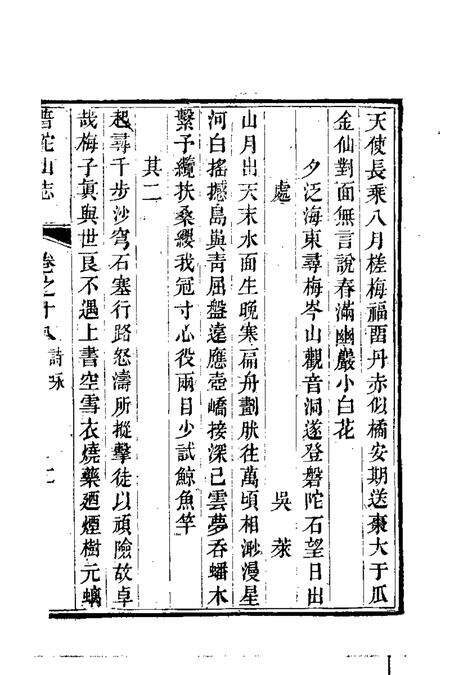 天使長乘八月槎梅福畱丹赤似橘安期送棗大于瓜
金仙對面無言說春滿幽巖小白花
夕泛海東尋梅岑山觀音洞遂登磐陀石望日出
處　吳萊
山月出天末水面生晚寒扁舟劃然往萬頃相渺漫星
河白搖撼島嶼青屈盤遠應壺嶠接深已雲夢吞蟠木
繫予纜扶桑纓我冠寸心役兩目少試鯨魚竿
其二
起尋千步沙穹石塞行路怒濤所摐擊徒以頑險故卓
哉梅子眞與世良不遇上書空雪衣燒藥廼煙樹元螭
普陀山志　卷之十八　詩咏